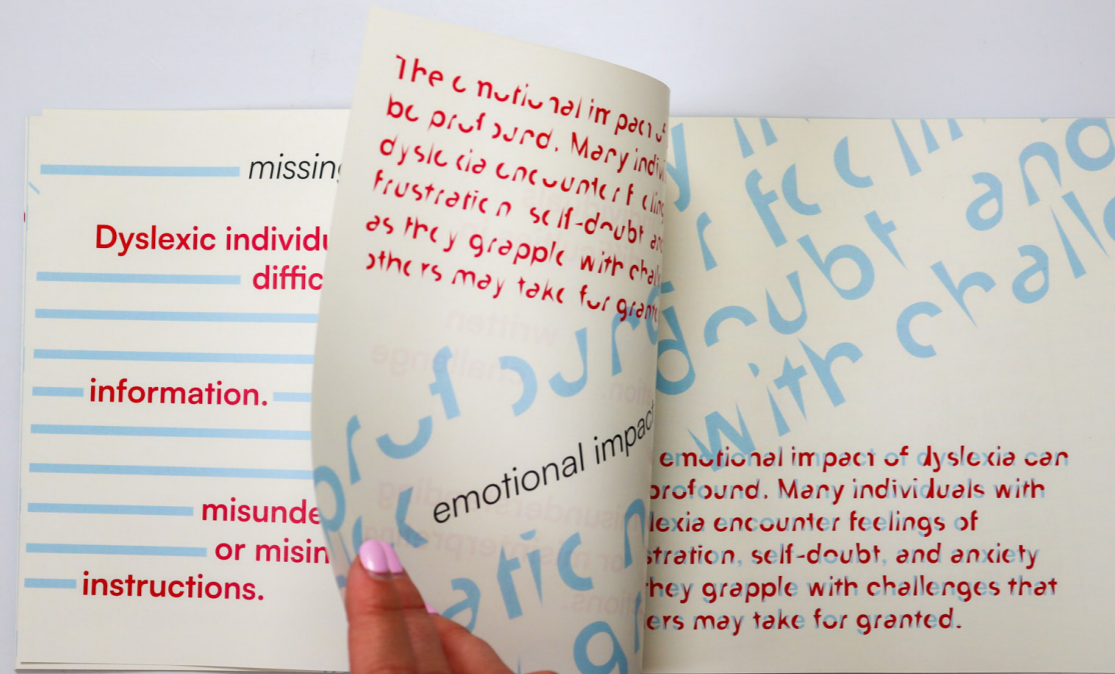 missing
Dyslexic individu
diffic
information.
misunde
or misin
instructions.
The emotional impact of
be profound. Many indivi
dyslexia encounter feeling
frustration self-doubt an
as they grapple with chall
others may take for grant
profound
emotional impact
atic n
gr
y in
r feelin
doubt and
with challe
emotional impact of dyslexia can
profound. Many individuals with
lexia encounter feelings of
stration, self-doubt, and anxiety
hey grapple with challenges that
ers may take for granted.